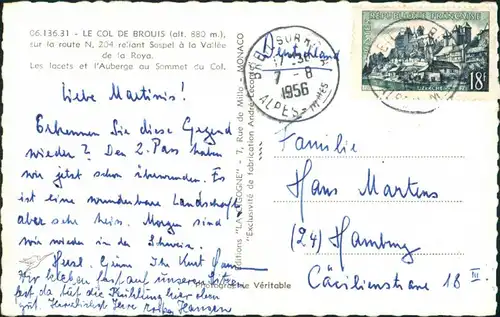 06.136.31 - LE COL DE BROUIS (alt. 880 m.)
sur la route N. 204 reliant Sospel à la Vallée
de la Roya.
Les lacets et l'Auberge au Sommet du Col.
Liebe Martinis!
Erkennen Sie diese Gegend
wieder? Den 2. Pass haben
wir jetzt schon überwunden. Es
ist eine wunderbare Landschaft
aber sehr heiss. Morgen sind
wir wieder in der Schweiz.
Herzl. Grüsse Ihr Kurt Hansen
Wir kleben fast auf unseren Sitzen
fest da tut die Kühlung hier oben
gut. Herzlichst Ihre Hansen
Editions "LA CIGOGNE" - 7, Rue de Millo - MONACO
"Exclusivité de fabrication André Leconte"
Photographie Véritable
Deutschland
BREIL SUR ROYA
17-30
7-8
1956
ALPES-MMES
18F
Familie
Hans Martens
(24) Hamburg
Cäcilienstrasse 18 III